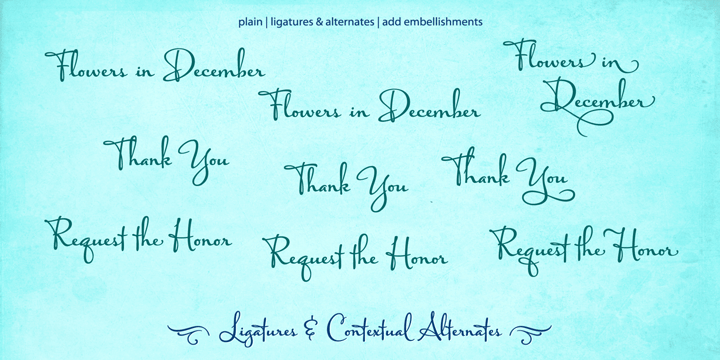 plain | ligatures & alternates | add embellishments
Flowers in December
Flowers in December
Flowers in
December
Thank You
Thank You
Thank You
Request the Honor
Request the Honor
Request the Honor
Ligatures & Contextual Alternates